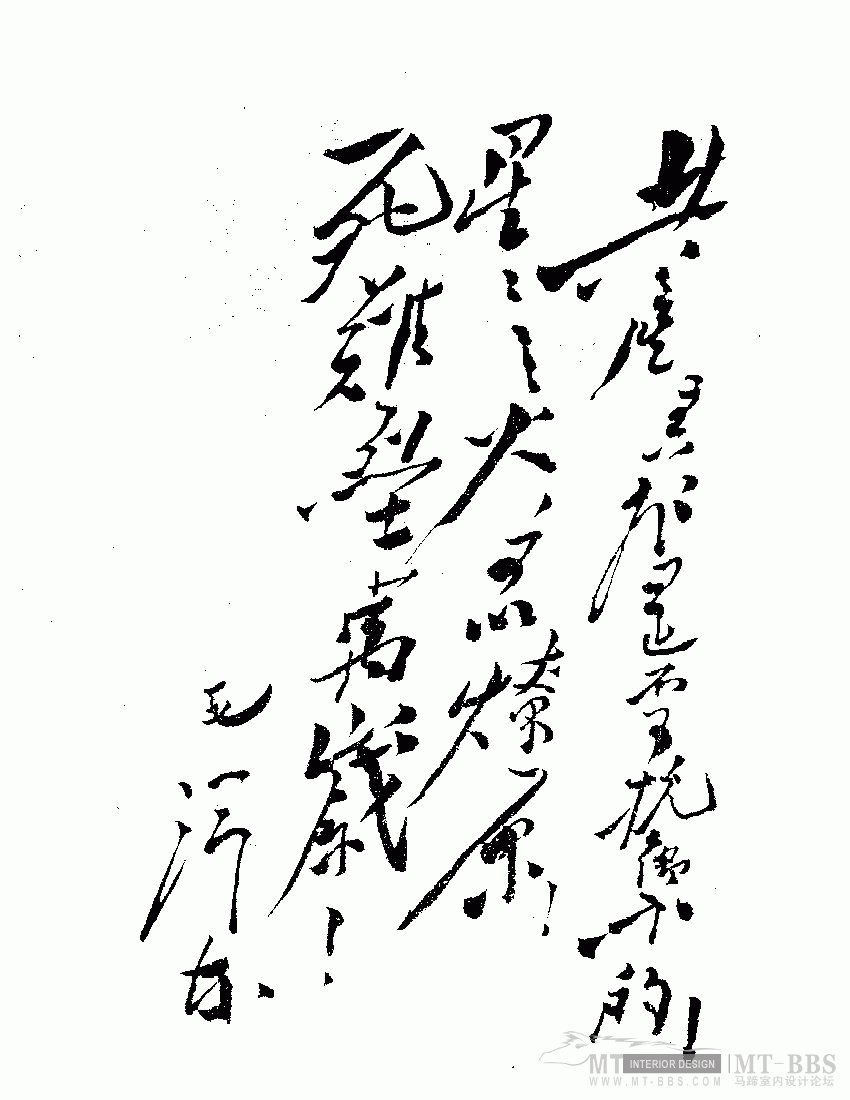 共產主義是不可抗禦的！
星星之火可以燎原！
死難烈士萬歲！
毛澤東
MT INTERIOR DESIGN | MT-BBS
WWW.MT-BBS.COM 马蹄室内设计论坛